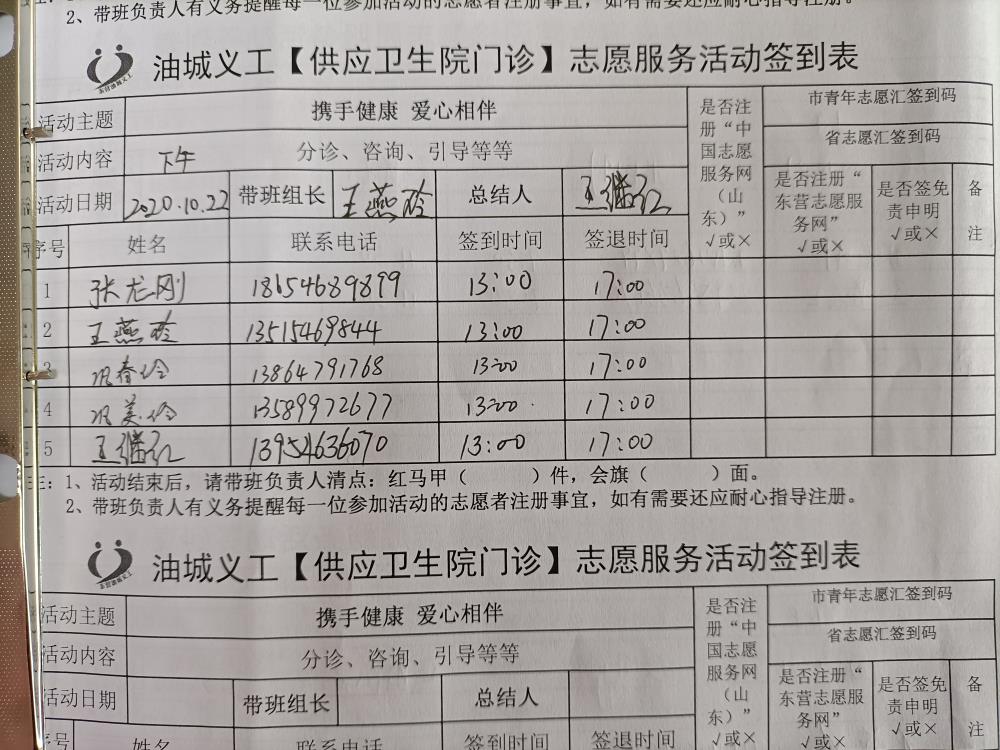 2、带班负责人有义务提醒每一位参加活动的志愿者注册事宜，如有需要还应耐心指导注册。
油城义工【供应卫生院门诊】志愿服务活动签到表
活动主题 携手健康 爱心相伴 是否注册“中国志愿服务网（山东）”√或× 市青年志愿汇签到码
省志愿汇签到码
活动内容 下午 分诊、咨询、引导等等 是否注册“东营志愿服务网”√或× 是否签免责申明√或× 备注
活动日期 2020.10.22 带班组长 王燕玲 总结人 王继红
序号 姓名 联系电话 签到时间 签退时间
1 张龙刚 18654689899 13:00 17:00
2 王燕玲 13515469844 13:00 17:00
3 巩春玲 13864791768 13:00 17:00
4 巩美玲 13589972677 13:00 17:00
5 王继红 13954636070 13:00 17:00
注：1、活动结束后，请带班负责人清点：红马甲（ ）件，会旗（ ）面。
2、带班负责人有义务提醒每一位参加活动的志愿者注册事宜，如有需要还应耐心指导注册。
油城义工【供应卫生院门诊】志愿服务活动签到表
活动主题 携手健康 爱心相伴 是否注册“中国志愿服务网（山东）”√或× 市青年志愿汇签到码
省志愿汇签到码
活动内容 分诊、咨询、引导等等 是否注册“东营志愿服务网”√或× 是否签免责申明√或× 备注
活动日期 带班组长 总结人
序号 姓名 联系电话 签到时间 签退时间